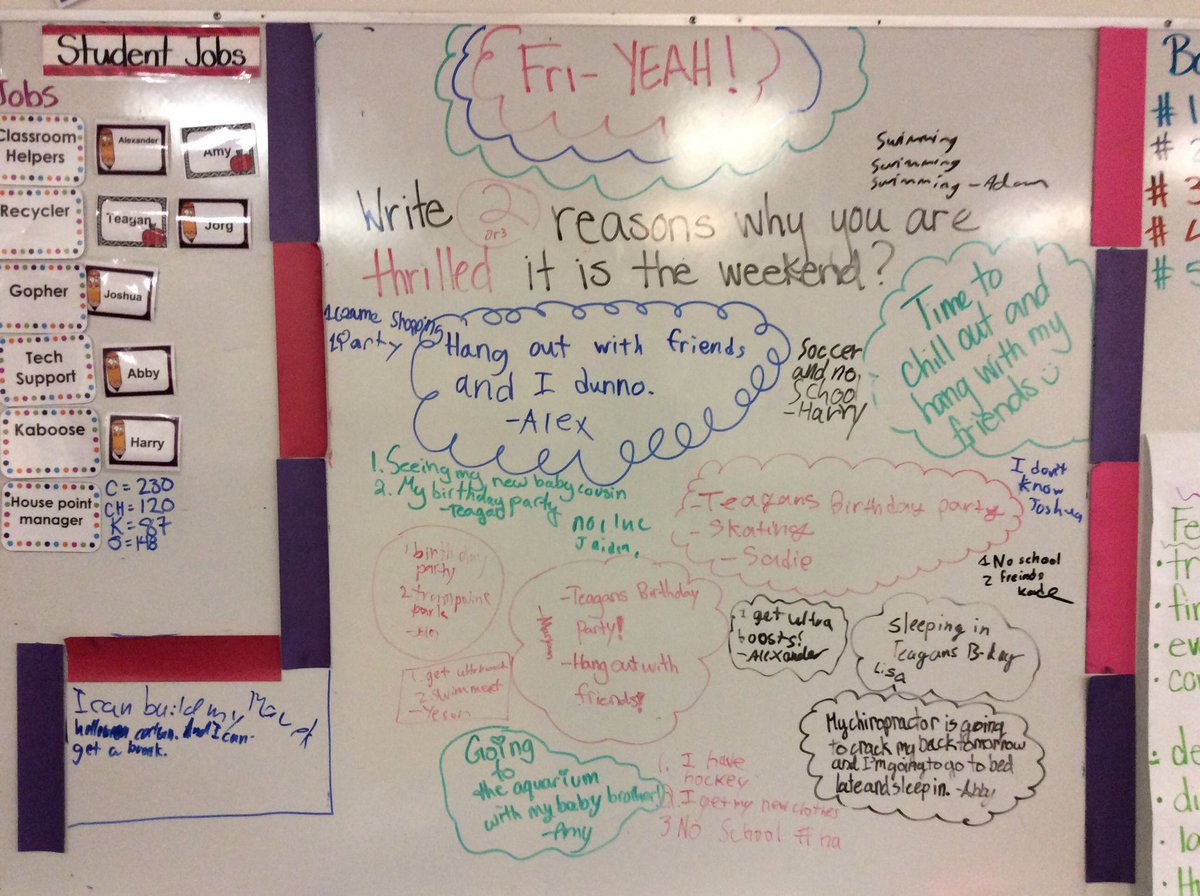 Student Jobs
Jobs
Classroom
Helpers
Alexander
Amy
Recycler
Teagan
Jorg
Gopher
Joshua
Tech
Support
Abby
Kaboose
Harry
House point
manager
C = 230
CH = 120
K = 87
O = 148
I can build my
get a break.
Fri-YEAH!
Swimming
Swimming
Swimming -Adam
Write 2 reasons why you are
or 3
thrilled it is the weekend?
1 Game Shopping
1 Party
Hang out with friends
and I dunno.
-Alex
Soccer
and no
school
-Harry
Time to
chill out and
hang with my
friends
1. Seeing my new baby cousin
2. My birthday party
-Teagan
-Teagans Birthday party
- Skating
- Sadie
I don't
know
Joshua
1 No school
2 freinds
1 birthday
party
2 trampoine
park
-Teagans Birthday
Party!
-Hang out with
friends!
I get ultra
boosts!
-Alexander
Sleeping in
Teagans B-day
Lisa
2 Swim meet
My chiropractor is going
to crack my back tomorrow
and I'm going to go to bed
late and sleep in. -Abby
Going
to
the aquarium
with my baby brother!
-Amy
1. I have
hockey
2 I get my new clothes
3 No School # ha
# 1
# 3